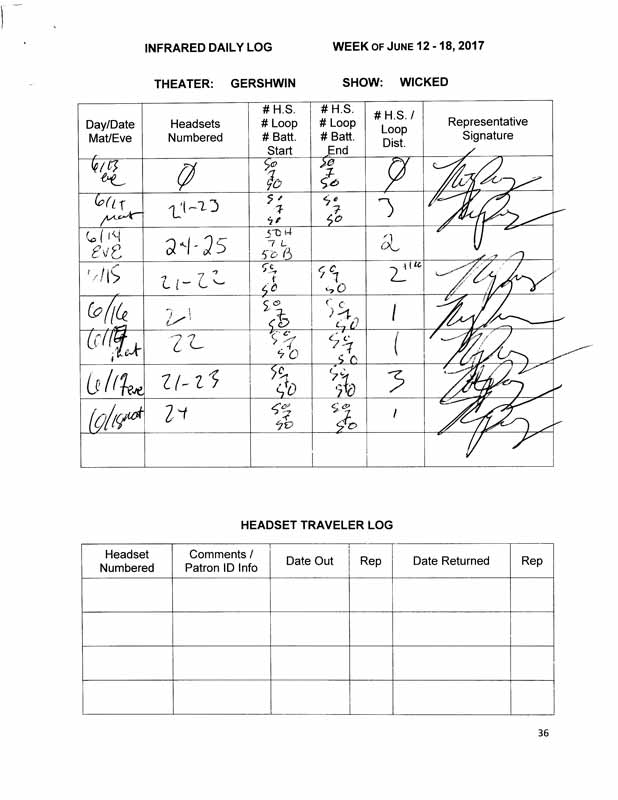 INFRARED DAILY LOG WEEK OF JUNE 12 - 18, 2017
THEATER: GERSHWIN SHOW: WICKED
Day/Date Mat/Eve Headsets Numbered # H.S. # Loop # Batt. Start # H.S. # Loop # Batt. End # H.S. / Loop Dist. Representative Signature
6/13 eve 0 50 7 50 50 7 50 0
mat 21-23 50 7 50 50 7 50 3
6/14 EVE 24-25 50H 7L 50B 2
6/15 21-22 50 7 50 50 7 50 2
6/16 21 50 7 50 50 7 50 1
6/17 mat 22 50 7 50 50 7 50 1
6/17 eve 21-23 50 7 50 50 7 50 3
6/18 mat 24 50 7 50 50 7 50 1
HEADSET TRAVELER LOG
Headset Numbered Comments / Patron ID Info Date Out Rep Date Returned Rep
36